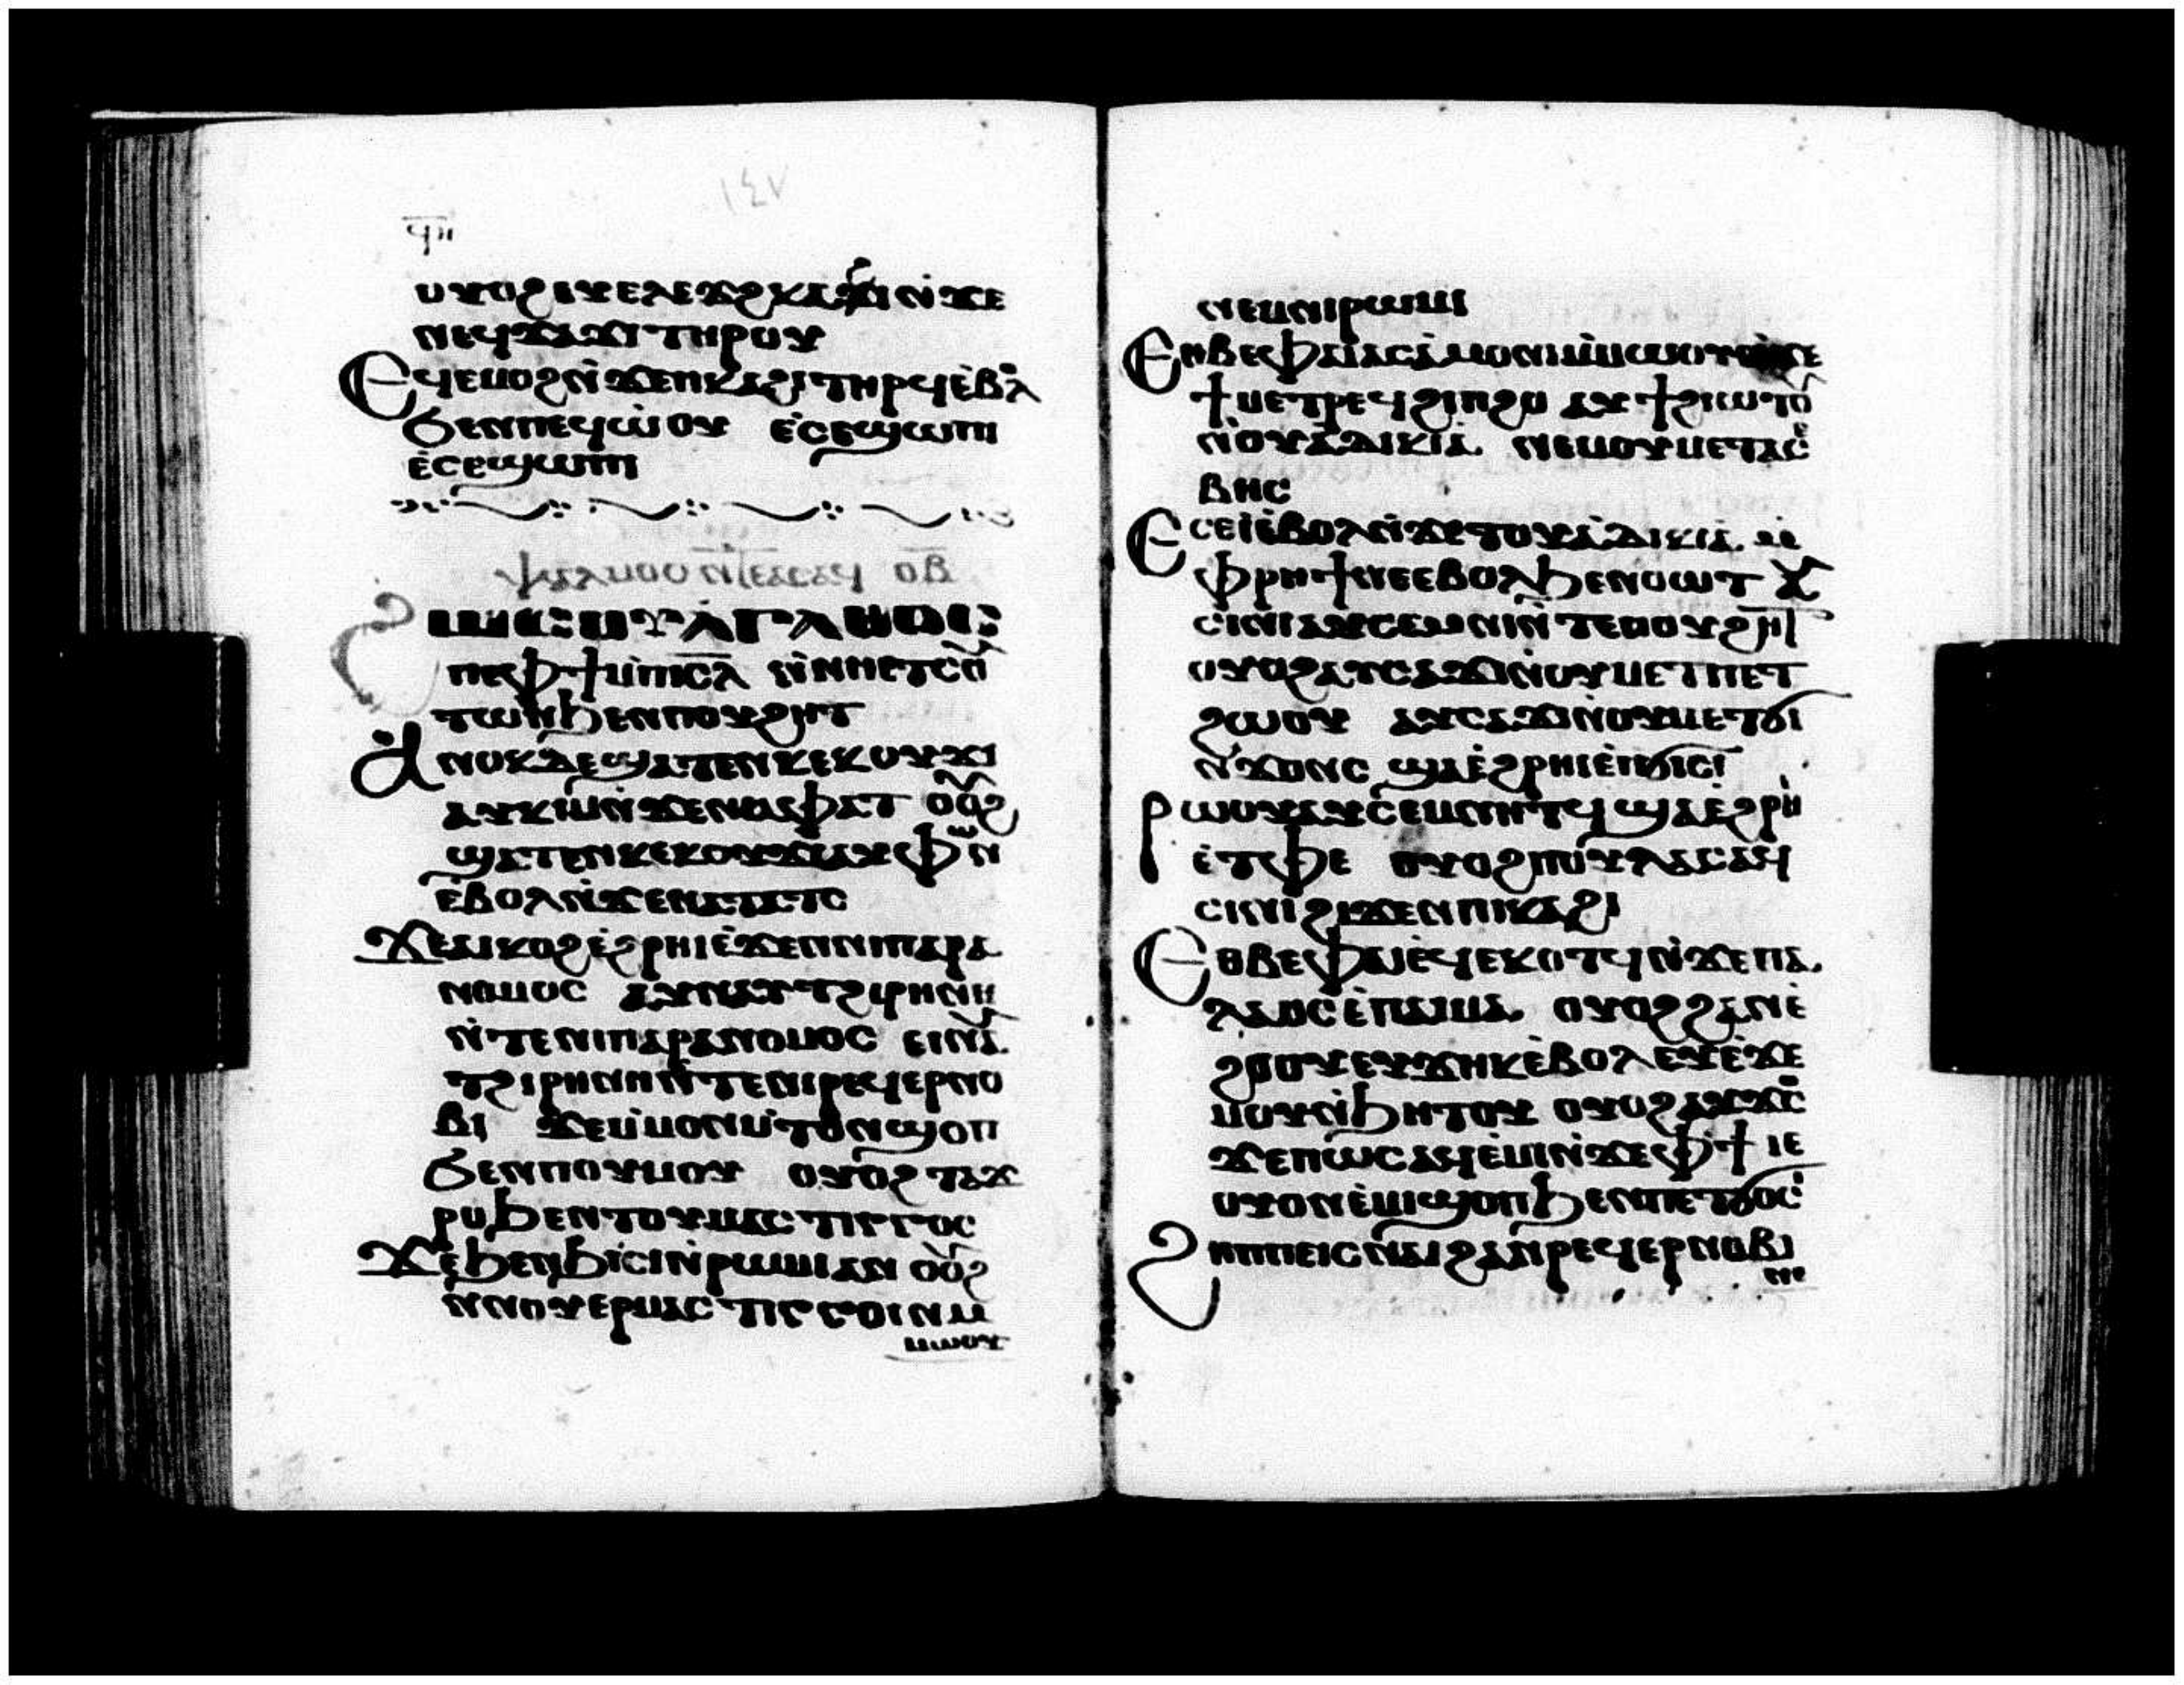 ⲟⲩⲟϩ ⲉⲩⲉⲗⲉⲕϩ ⲕⲁϩⲓ ⲛ̀ϫⲉ
ⲛⲉϥϫⲁϫⲓ ⲧⲏⲣⲟⲩ
Ⲉϥⲉⲙⲟϩ ⲛ̀ϫⲉ ⲡⲕⲁϩⲓ ⲧⲏⲣϥ ⲉ̀ⲃⲟⲗ
ϧⲉⲛ ⲡⲉϥⲱ̀ⲟⲩ ⲉ̀ⲥⲉϣⲱⲡⲓ
ⲉ̀ⲥⲉϣⲱⲡⲓ
ⲟ̅ⲃ̅
Ϩⲱⲥ ⲟⲩⲁ̀ⲅⲁⲑⲟⲥ
ⲡⲉ ⲫϯ ⲙ̀ⲡⲓⲥ̅ⲗ̅ ⲛ̀ⲛⲏⲉⲧⲥⲟⲩ
ⲧⲱⲛ ϧⲉⲛ ⲡⲟⲩϩⲏⲧ
Ⲁⲛⲟⲕ ⲇⲉ ϣⲁⲧⲉⲛ ⲕⲉⲕⲟⲩϫⲓ
ⲁⲩⲕⲓⲙ ⲛ̀ϫⲉ ⲛⲁϭⲁⲗⲁⲩϫ ⲟⲩⲟϩ
ϣⲁⲧⲉⲛ ⲕⲉⲕⲟⲩϫⲓ ⲁⲩⲫⲱⲛ
ⲉ̀ⲃⲟⲗ ⲛ̀ϫⲉ ⲛⲁⲧⲁⲧⲥⲓ
Ϫⲉ ⲁⲓⲭⲟϩ ⲉ̀ϩⲣⲏⲓ ⲉ̀ϫⲉⲛ ⲛⲓⲡⲁⲣⲁ
ⲛⲟⲙⲟⲥ ⲉⲓⲛⲁⲩ ⲧϩⲓⲣⲏⲛⲏ
ⲛ̀ⲧⲉ ⲛⲓⲡⲁⲣⲁⲛⲟⲙⲟⲥ ⲉⲓⲛⲁⲩ
ⲧϩⲓⲣⲏⲛⲏ ⲛ̀ⲧⲉ ⲛⲓⲣⲉϥⲉⲣⲛⲟ
ⲃⲓ ϫⲉ ⲙ̀ⲙⲟⲛ ⲙ̀ⲧⲟⲛ ϣⲟⲡ
ϧⲉⲛ ⲡⲟⲩⲙⲟⲩ ⲟⲩⲟϩ ⲧⲁϫ
ⲣⲟ ϧⲉⲛ ⲧⲟⲩⲙⲁⲥⲧⲓⲅⲅⲟⲥ
Ϫⲉ ϧⲉⲛ ϧⲓⲥⲓ ⲛ̀ⲣⲱⲙⲓ ⲁⲛ ⲟⲩⲟϩ
ⲛ̀ⲛⲟⲩⲉⲣⲙⲁⲥⲧⲓⲅⲅⲟⲓⲛ ⲙ̀
ⲙⲱⲟⲩ
ⲛⲉⲙ ⲛⲓⲣⲱⲙⲓ
Ⲉⲑⲃⲉ ⲫⲁⲓ ⲁⲥⲁ̀ⲙⲟⲛⲓ ⲙ̀ⲙⲱⲟⲩ ⲛ̀ϫⲉ
ϯⲙⲉⲧⲣⲉϥϭⲓⲛϩⲟ ⲁⲩϯϩⲓⲱⲧⲟⲩ
ⲛ̀ⲟⲩⲁ̀ⲇⲓⲕⲓⲁ ⲛⲉⲙ ⲟⲩⲙⲉⲧⲁⲥⲉ
ⲃⲏⲥ
Ⲉⲥⲉⲓ̀ ⲉ̀ⲃⲟⲗ ⲛ̀ϫⲉ ⲧⲟⲩⲁ̀ⲇⲓⲕⲓⲁ ⲙ̀
ⲫⲣⲏϯ ⲉ̀ⲃⲟⲗ ϧⲉⲛ ⲟⲩⲱⲧ ⲁⲩ
ⲥⲓⲛⲓ ⲛ̀ⲧⲉ ⲡⲟⲩϩⲏⲧ
ⲟⲩⲟϩ ⲁⲩⲥⲁϫⲓ ⲛ̀ⲟⲩⲙⲉⲧⲡⲉⲧ
ϩⲱⲟⲩ ⲁⲩⲥⲁϫⲓ ⲛ̀ⲟⲩⲙⲉⲧϭⲓ
ⲛ̀ϫⲟⲛⲥ ϣⲁ ⲉ̀ϩⲣⲏⲓ ⲉ̀ⲡϭⲓⲥⲓ
Ⲣⲱⲟⲩ ⲁⲩⲥⲉⲙⲛⲏⲧϥ ϣⲁ ⲉ̀ϩⲣⲏⲓ
ⲉ̀ⲧⲫⲉ ⲟⲩⲟϩ ⲡⲟⲩⲗⲁⲥ ⲁϥ
ⲥⲓⲛⲓ ϩⲓϫⲉⲛ ⲡⲓⲕⲁϩⲓ
Ⲉⲑⲃⲉ ⲫⲁⲓ ⲉϥⲉⲕⲟⲧϥ ⲛ̀ϫⲉ ⲡⲁ
ⲗⲁⲟⲥ ⲉ̀ⲡⲁⲓⲙⲁ ⲟⲩⲟϩ ϩⲁⲛⲉ̀
ϩⲟⲟⲩ ⲉⲩϫⲏⲕ ⲉ̀ⲃⲟⲗ ⲉⲩⲉ̀ϫⲉ
ⲙⲟⲩ ⲛ̀ϧⲏⲧⲟⲩ ⲟⲩⲟϩ ⲁⲩϫⲟⲥ
ϫⲉ ⲡⲱⲥ ⲁϥⲉ̀ⲙⲓ ⲛ̀ϫⲉ ⲫϯ ⲓⲉ
ⲟⲩⲟⲛ ⲉ̀ⲙⲓ ϣⲟⲡ ϧⲉⲛ ⲡⲉⲧϭⲟⲥⲓ
Ϩⲏⲡⲡⲉ ⲓⲥ ⲛⲁⲓ ϩⲁⲛⲣⲉϥⲉⲣⲛⲟⲃⲓ
ⲛⲉ